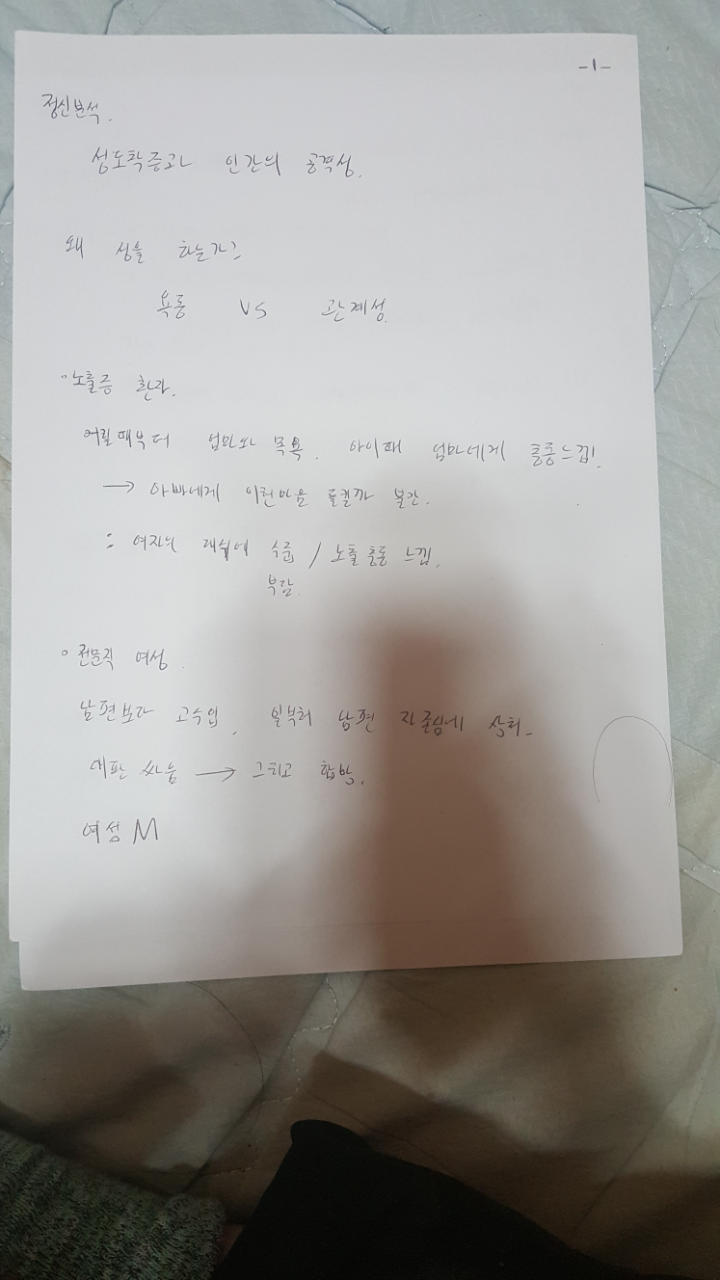 -1-
정신분석.
성도착증과 인간의 공격성.
왜 성을 하는가?
욕동 VS 관계성.
• 노출증 환자.
어릴때부터 엄마와 목욕. 아이때 엄마에게 충동느낌!
→ 아빠에게 이런마음 들킬까 불안.
: 여자의 수줍 / 노출 충동 느낌.
부담.
• 전문직 여성.
남편보다 고수입. 일부러 남편 자존심에 상처.
대판 싸움 → 그리고 합방.
여성 M